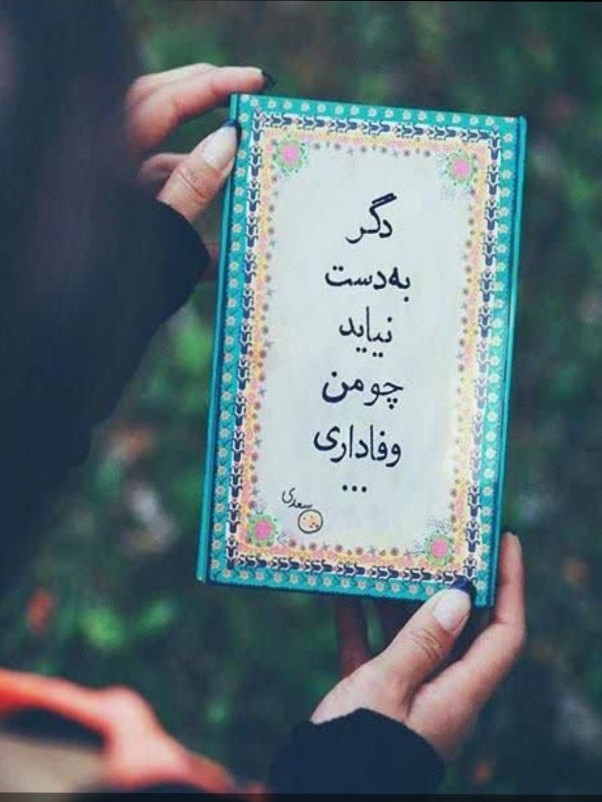 دگر
به‌دست
نیاید
چو من
وفاداری
...
سعدی